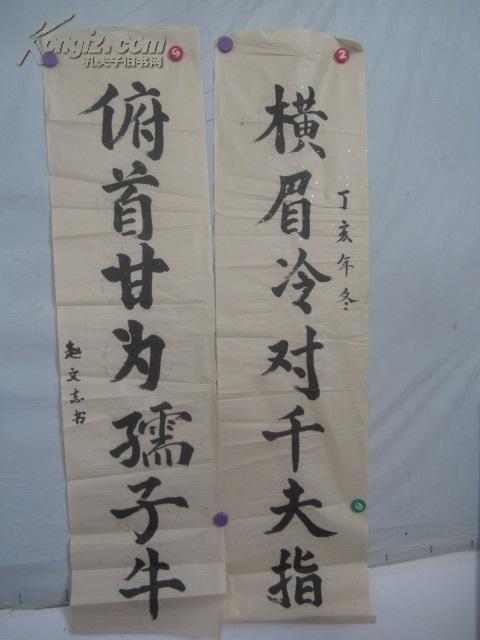 横眉冷对千夫指
丁亥年冬
俯首甘为孺子牛
赵文志书
Kongfz.com
孔夫子旧书网
2
9
9